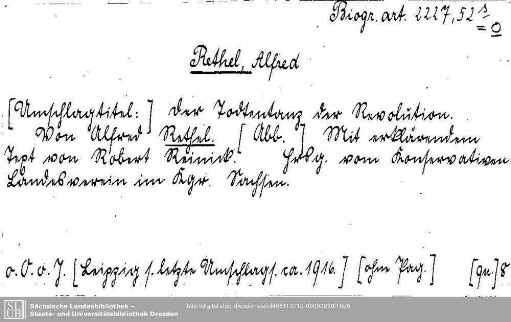 Biogr. art. 2227,52
Rethel, Alfred
[Umschlagtitel:] Der Todtentanz der Revolution.
Von Alfred Rethel. [Abb.] Mit erklärendem
Text von Robert Reinick. Hrsg. vom Konservativen
Landesverein im Kgr. Sachsen.
o. O. o. J. [Leipzig s. letzte Umschlags. ca. 1916.] [ohne Pag.] [qu.] 8
Sächsische Landesbibliothek –
Staats- und Universitätsbibliothek Dresden